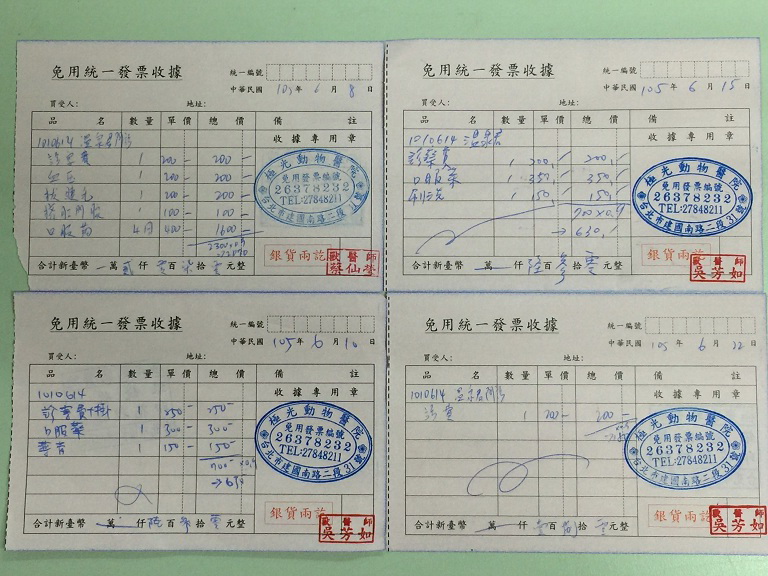 免用統一發票收據
統一編號
中華民國 105 年 6 月 8 日
買受人: 地址:
品 名 數量 單價 總價 備 註
收據專用章
1010614 溫泉君
1 200 200
血压 1 200 200
1 200 200
1 100 100
口服药 4月 400 1600
極光動物醫院
免用發票編號
26378232
TEL:27848211
台北市建國南路二段31號
銀貨兩訖
獸醫師
蔡仙
合計新臺幣 萬 貳 仟 零 百 柒 拾 零 元整
免用統一發票收據
統一編號
中華民國 105 年 6 月 15 日
買受人: 地址:
品 名 數量 單價 總價 備 註
收據專用章
1010614 溫泉君
診察費 1 200 200
口服藥 1 350 350
1 150 150
700×0.9
→630
極光動物醫院
免用發票編號
26378232
TEL:27848211
台北市建國南路二段31號
銀貨兩訖
獸醫師
吳芳如
合計新臺幣 萬 仟 陸 百 參 拾 零 元整
免用統一發票收據
統一編號
中華民國 105 年 6 月 10 日
買受人: 地址:
品 名 數量 單價 總價 備 註
收據專用章
1010614
診察費+掛 1 250 250
口服藥 1 300 300
1 150 150
700 ×0.9
→630
極光動物醫院
免用發票編號
26378232
TEL:27848211
台北市建國南路二段31號
銀貨兩訖
獸醫師
吳芳如
合計新臺幣 萬 仟 陸 百 拾 零 元整
免用統一發票收據
統一編號
中華民國 105 年 6 月 22 日
買受人: 地址:
品 名 數量 單價 總價 備 註
收據專用章
1010614 溫泉君
1 200 200
極光動物醫院
免用發票編號
26378232
TEL:27848211
台北市建國南路二段31號
銀貨兩訖
獸醫師
吳芳如
合計新臺幣 萬 仟 壹 百 捌 拾 零 元整